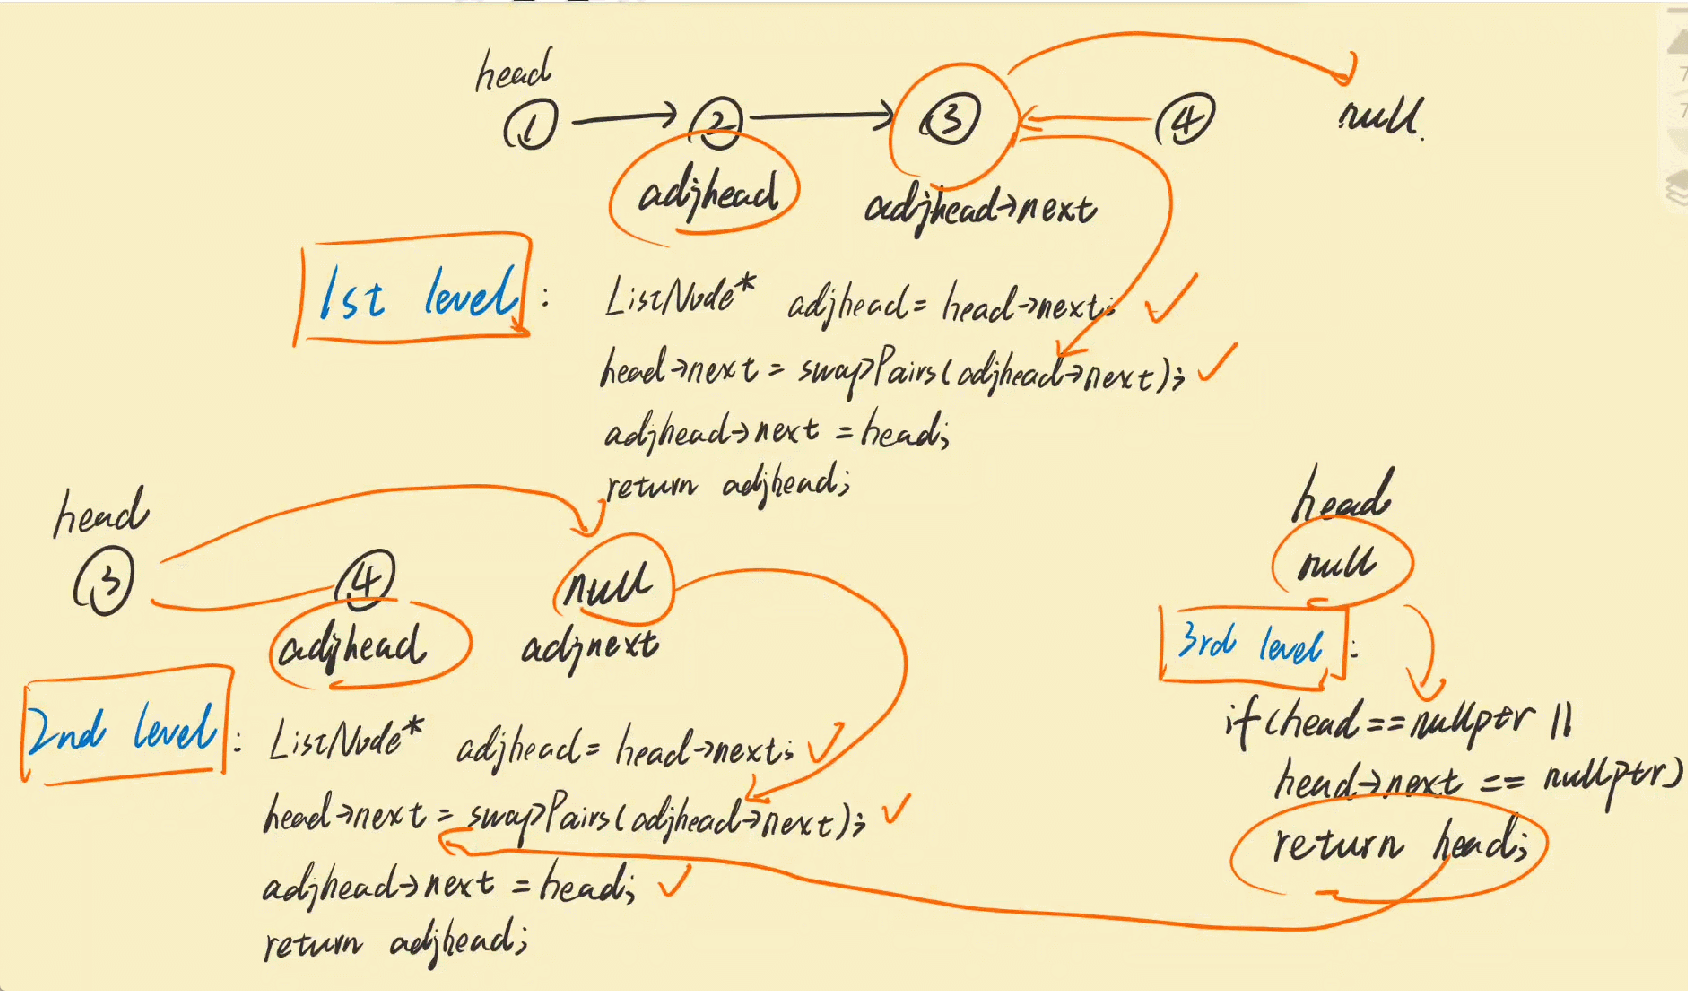 head
① ② ③ ④ null
adjhead adjhead→next
1st level : ListNode* adjhead = head→next;
head→next = swapPairs(adjhead→next);
adjhead→next = head;
return adjhead;
head
③ ④ null
adjhead adjnext
2nd level : ListNode* adjhead = head→next;
head→next = swapPairs(adjhead→next);
adjhead→next = head;
return adjhead;
head
null
3rd level :
if (head == nullptr ||
head→next == nullptr)
return head;